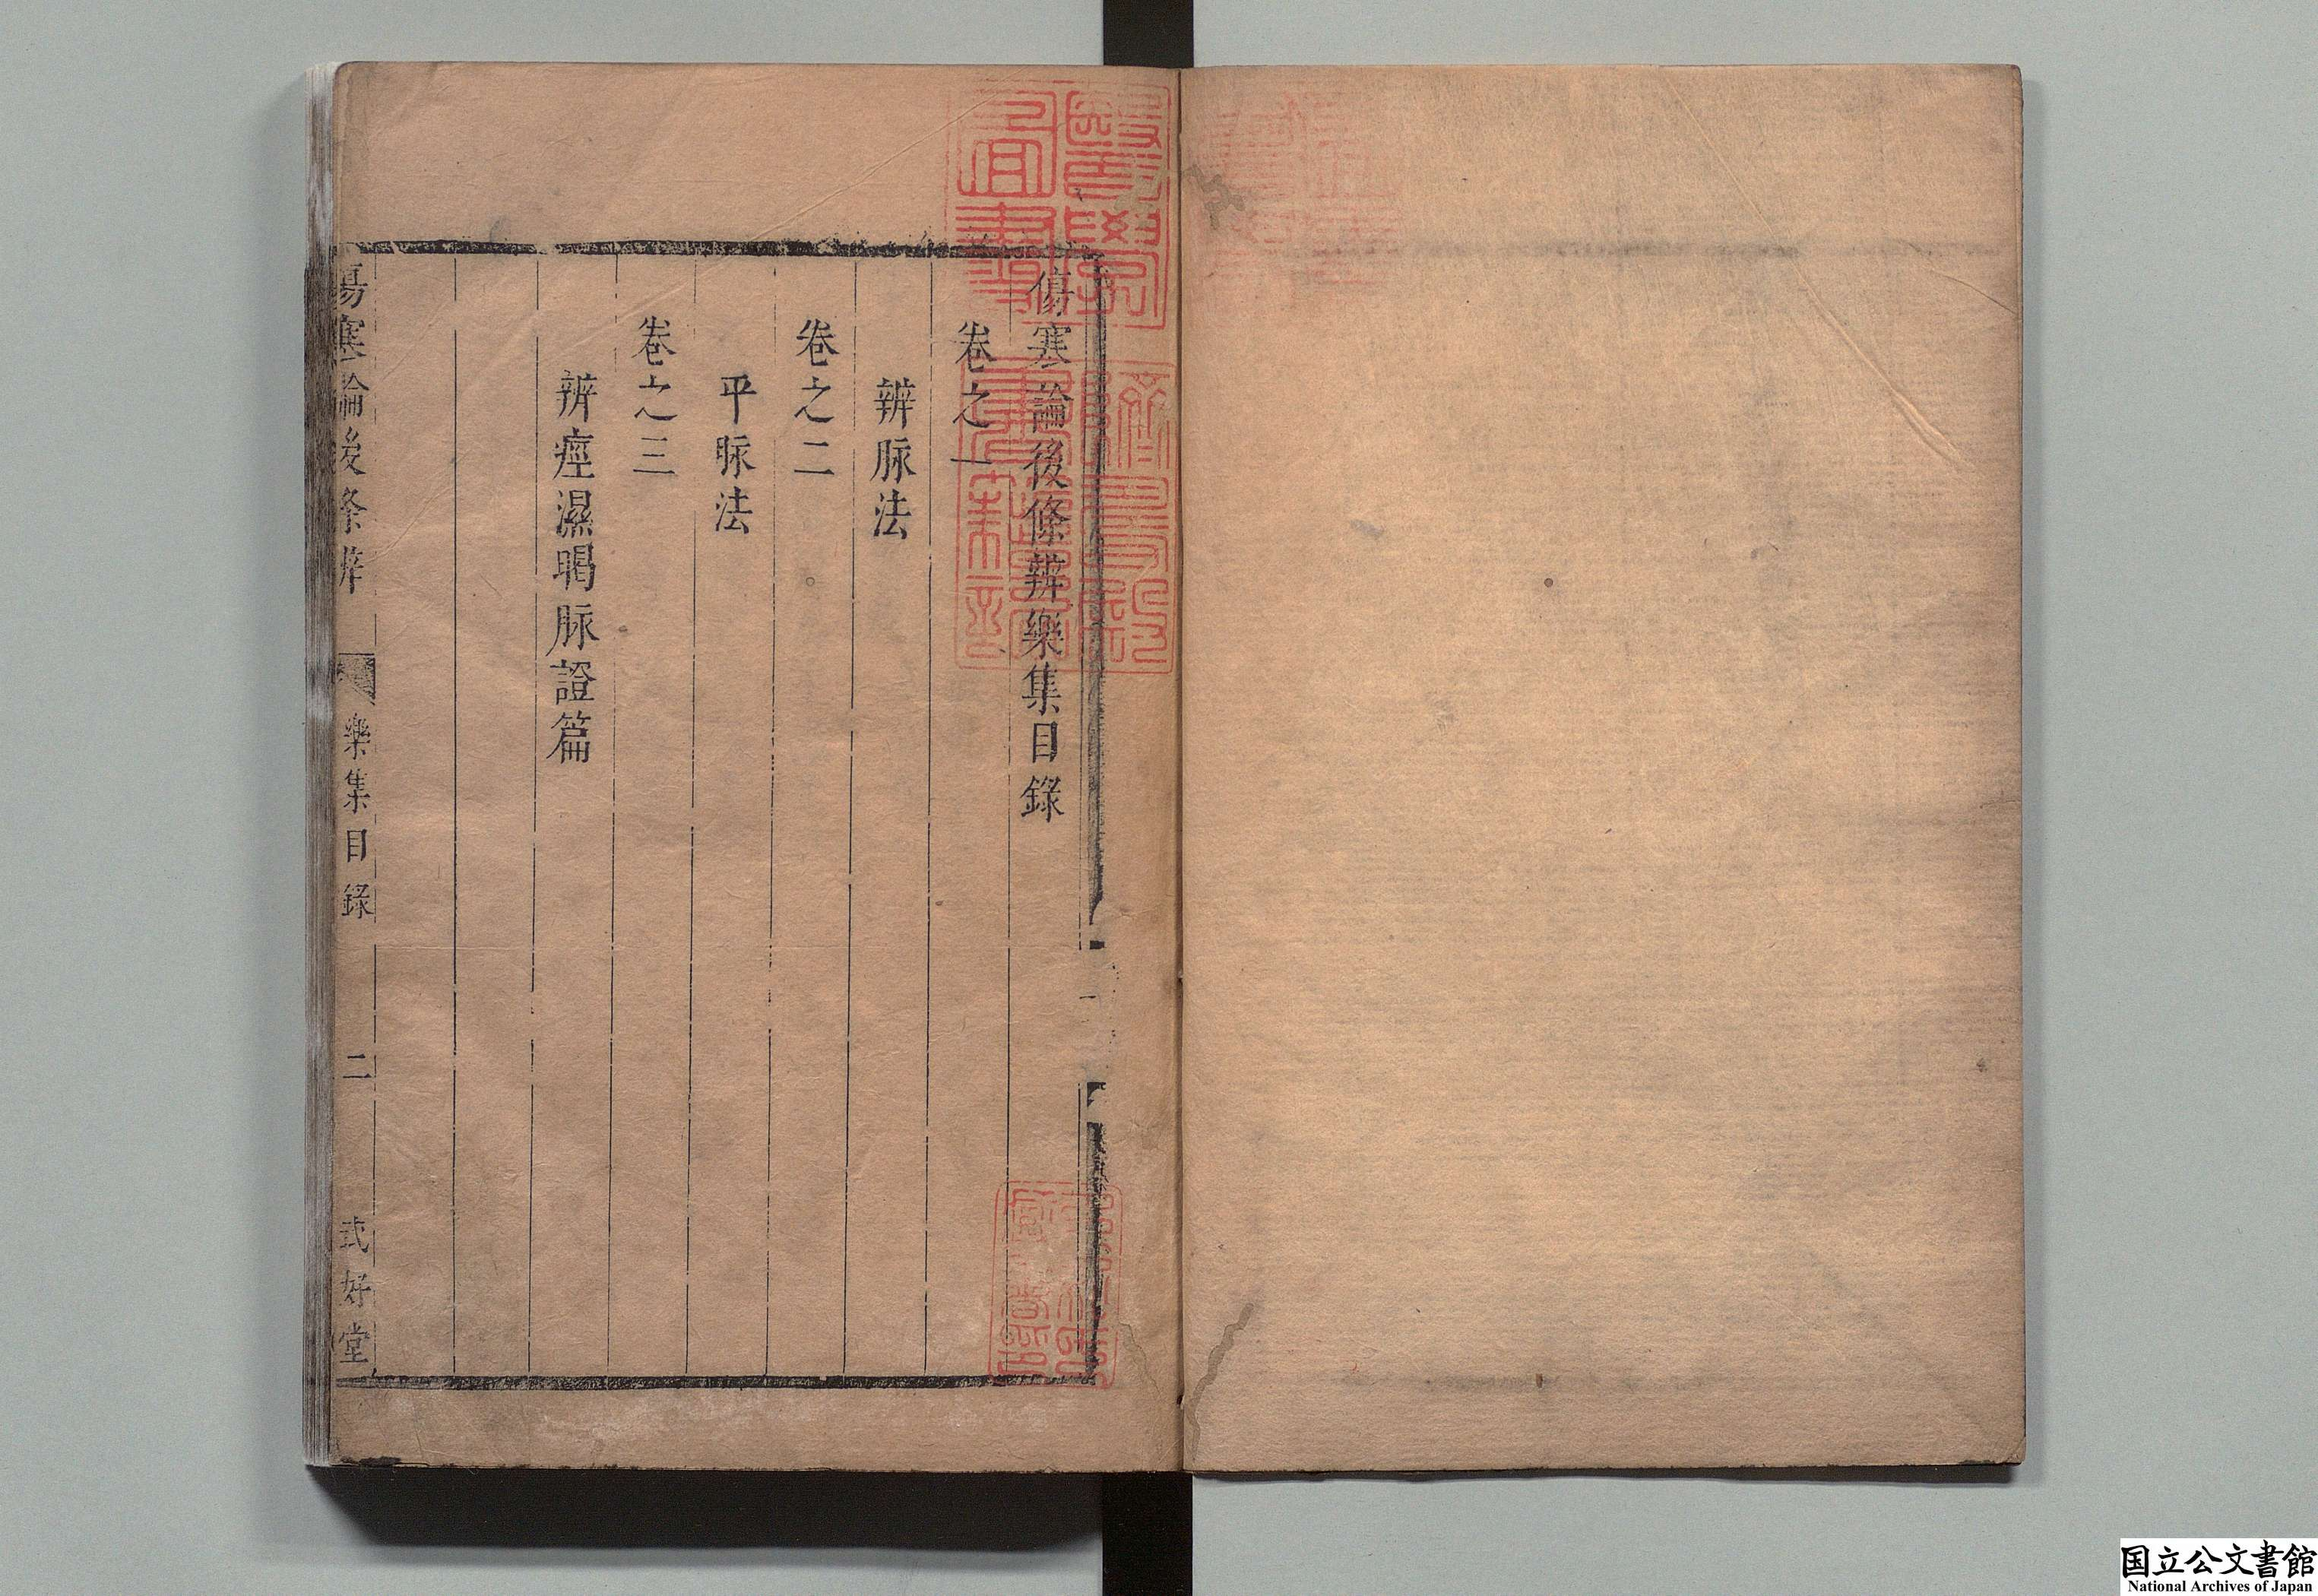 傷寒論後條辨樂集目錄
卷之一
辨脉法
卷之二
平脉法
卷之三
辨痙濕暍脉證篇
傷寒論後条辨 樂集目錄 二 式好堂
醫學圖書
躋壽殿書籍記
国立公文書館
National Archives of Japan